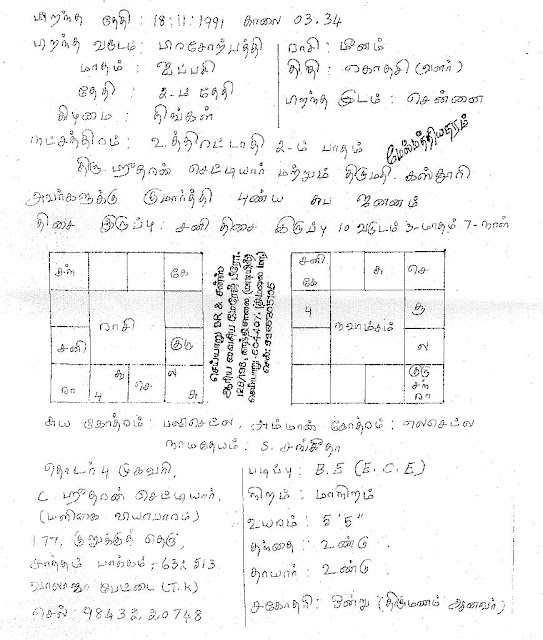 பிறந்த தேதி : 18:11:1991 காலை 03.34
பிறந்த வருடம் : பிரசோற்பத்தி
ராசி : மீனம்
மாதம் : ஐப்பசி
திதி : ஏகாதசி (வளர்)
தேதி : 2-ம் தேதி
பிறந்த இடம் : சென்னை
கிழமை : திங்கள்
நட்சத்திரம் : உத்திரட்டாதி 2-ம் பாதம்
திரு. செட்டியார் மற்றும் திருமதி. கஸ்தூரி
அவர்களுக்கு குமார்த்தி புண்ய சுப ஜனனம்
திசை இருப்பு : சனி திசை இருப்பு 10 வருடம் 3-மாதம் 7-நாள்
சந் கே
ராசி
சனி குரு
ரா பு சூ செ ல சு
செய்யாறு BR & சன்ஸ்
சனி கே சு செ
பு சூ
நவாம்சம்
ல
குரு சந் ரா
சுய கோத்ரம் : பலிசெட்ல, அம்மான் கோத்ரம் : எலசெட்ல
நாமதேயம் : S. சங்கீதா
தொடர்பு முகவரி,
(மளிகை வியாபாரம்)
177, தெரு,
பாக்கம் - 632 513
வாலாஜா பேட்டை (T.K)
செல் : 98432 20748
படிப்பு : B.E (E.C.E)
நிறம் : மாநிறம்
உயரம் : 5 '5"
தந்தை : உண்டு
தாயார் : உண்டு
சகோதரி : ஒன்று (திருமணம் ஆனவர்)